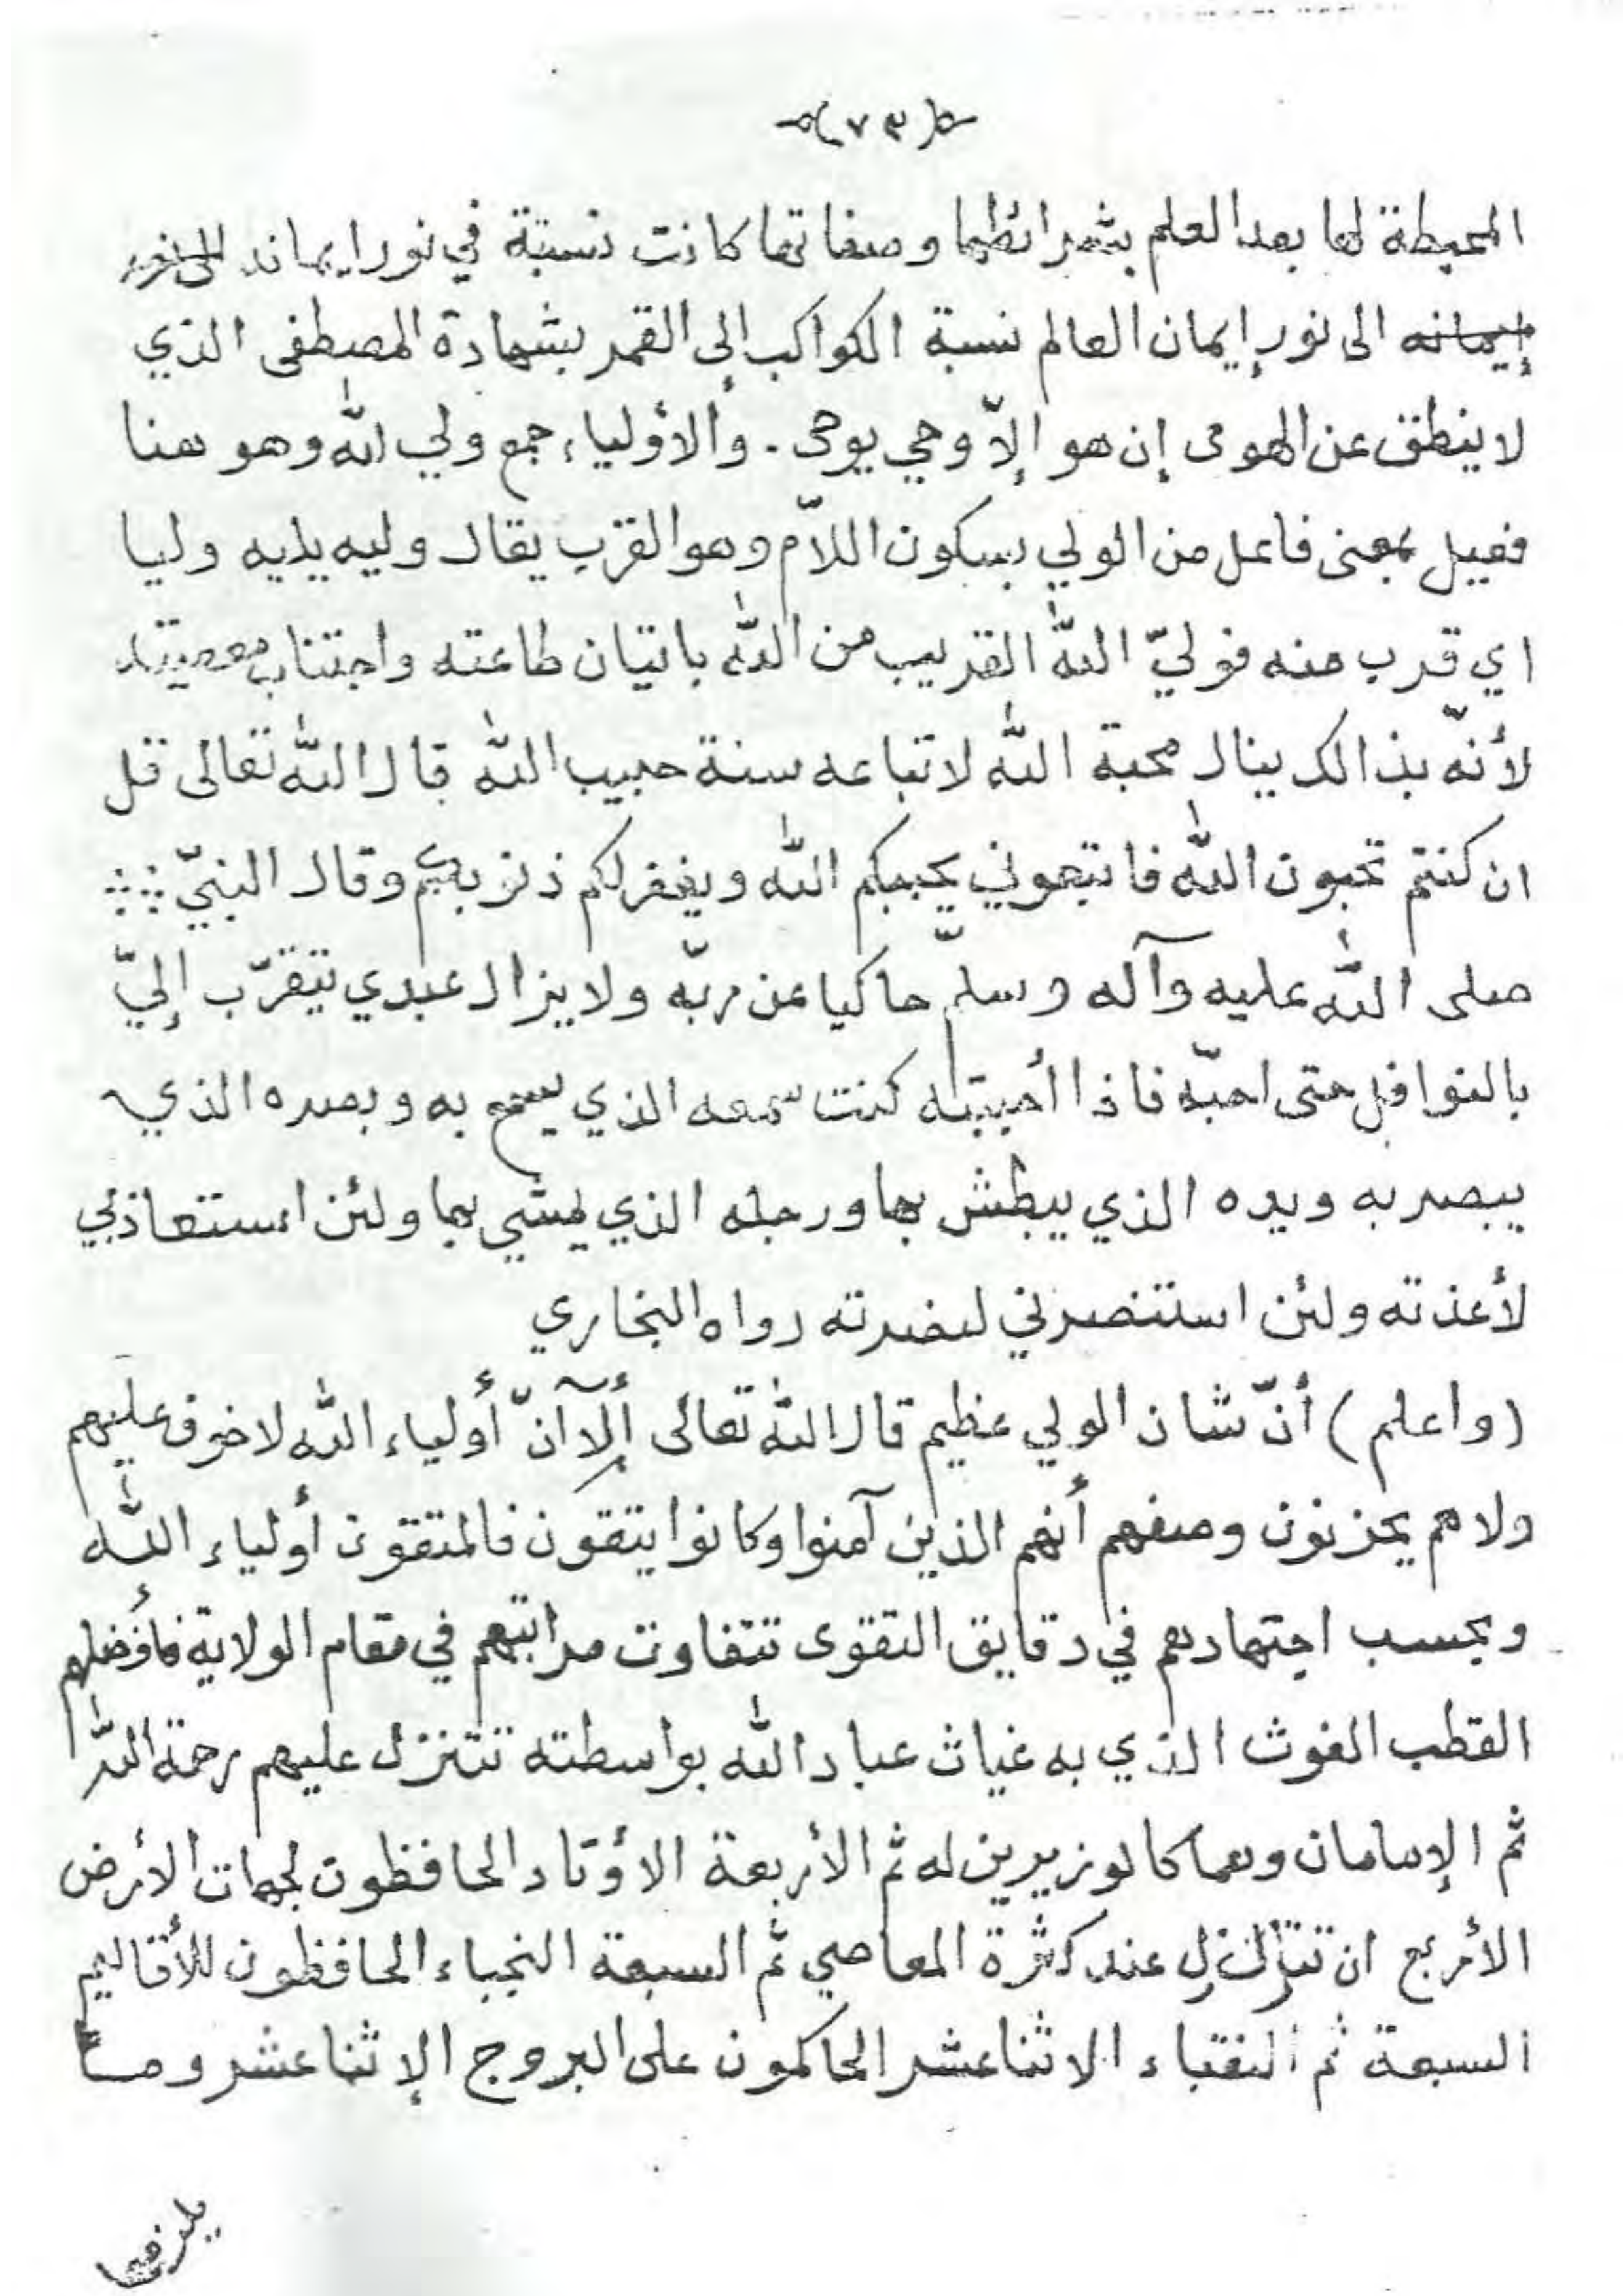 (٧٣)
المحيطة لها بعد العلم بشرائطها وصفاتها كانت نسبة في نور ايمانه الى نور
إيمانه الى نور إيمان العالم نسبة الكواكب إلى القمر بشهادة المصطفى الذي
لا ينطق عن الهوى إن هو إلاّ وحي يوحى . والأولياء جمع ولي الله وهو هنا
فعيل بمعنى فاعل من الولي بسكون اللاّم وهو القرب يقال وليه يليه وليا
اي قرب منه فوليّ اللّه القريب من اللّه باتيان طاعته واجتناب معصيته
لأنّه بذالك ينال محبة اللّه لاتباعه سنة حبيب اللّه قال اللّه تعالى قل
ان كنتم تحبون اللّه فاتبعوني يحببكم اللّه ويغفر لكم ذنوبكم وقال النبيّ
صلى اللّه عليه وآله وسلّم حاكيا عن ربّه ولا يزال عبدي يتقرّب إليّ
بالنوافل حتى احبّه فاذا أحببته كنت سمعه الذي يسمع به وبصره الذي
يبصر به ويده الذي يبطش بها ورجله الذي يمشي بها ولئن استعاذني
لأعذته ولئن استنصرني لنصرته رواه البخاري
(واعلم) أنّ شان الولي عظيم قال اللّه تعالى ألآ انّ أولياء اللّه لا خوف عليهم
ولا هم يحزنون وصفهم أنهم الذين آمنوا وكانوا يتقون فالمتقون أولياء اللّه
وبحسب اجتهادهم في دقايق التقوى تتفاوت مراتبهم في مقام الولاية فأفضلهم
القطب الغوث الذي به غياث عباد اللّه بواسطته تتنزل عليهم رحمة اللّه
ثم الإمامان وهما كالوزيرين له ثم الأربعة الأوتاد الحافظون لجهات الأرض
الأربع ان تتزلزل عند كثرة المعاصي ثم السبعة النجباء الحافظون للأقاليم
السبعة ثم النقباء الاثنا عشر الحاكمون على البروج الإثنا عشر وما
يلزمها